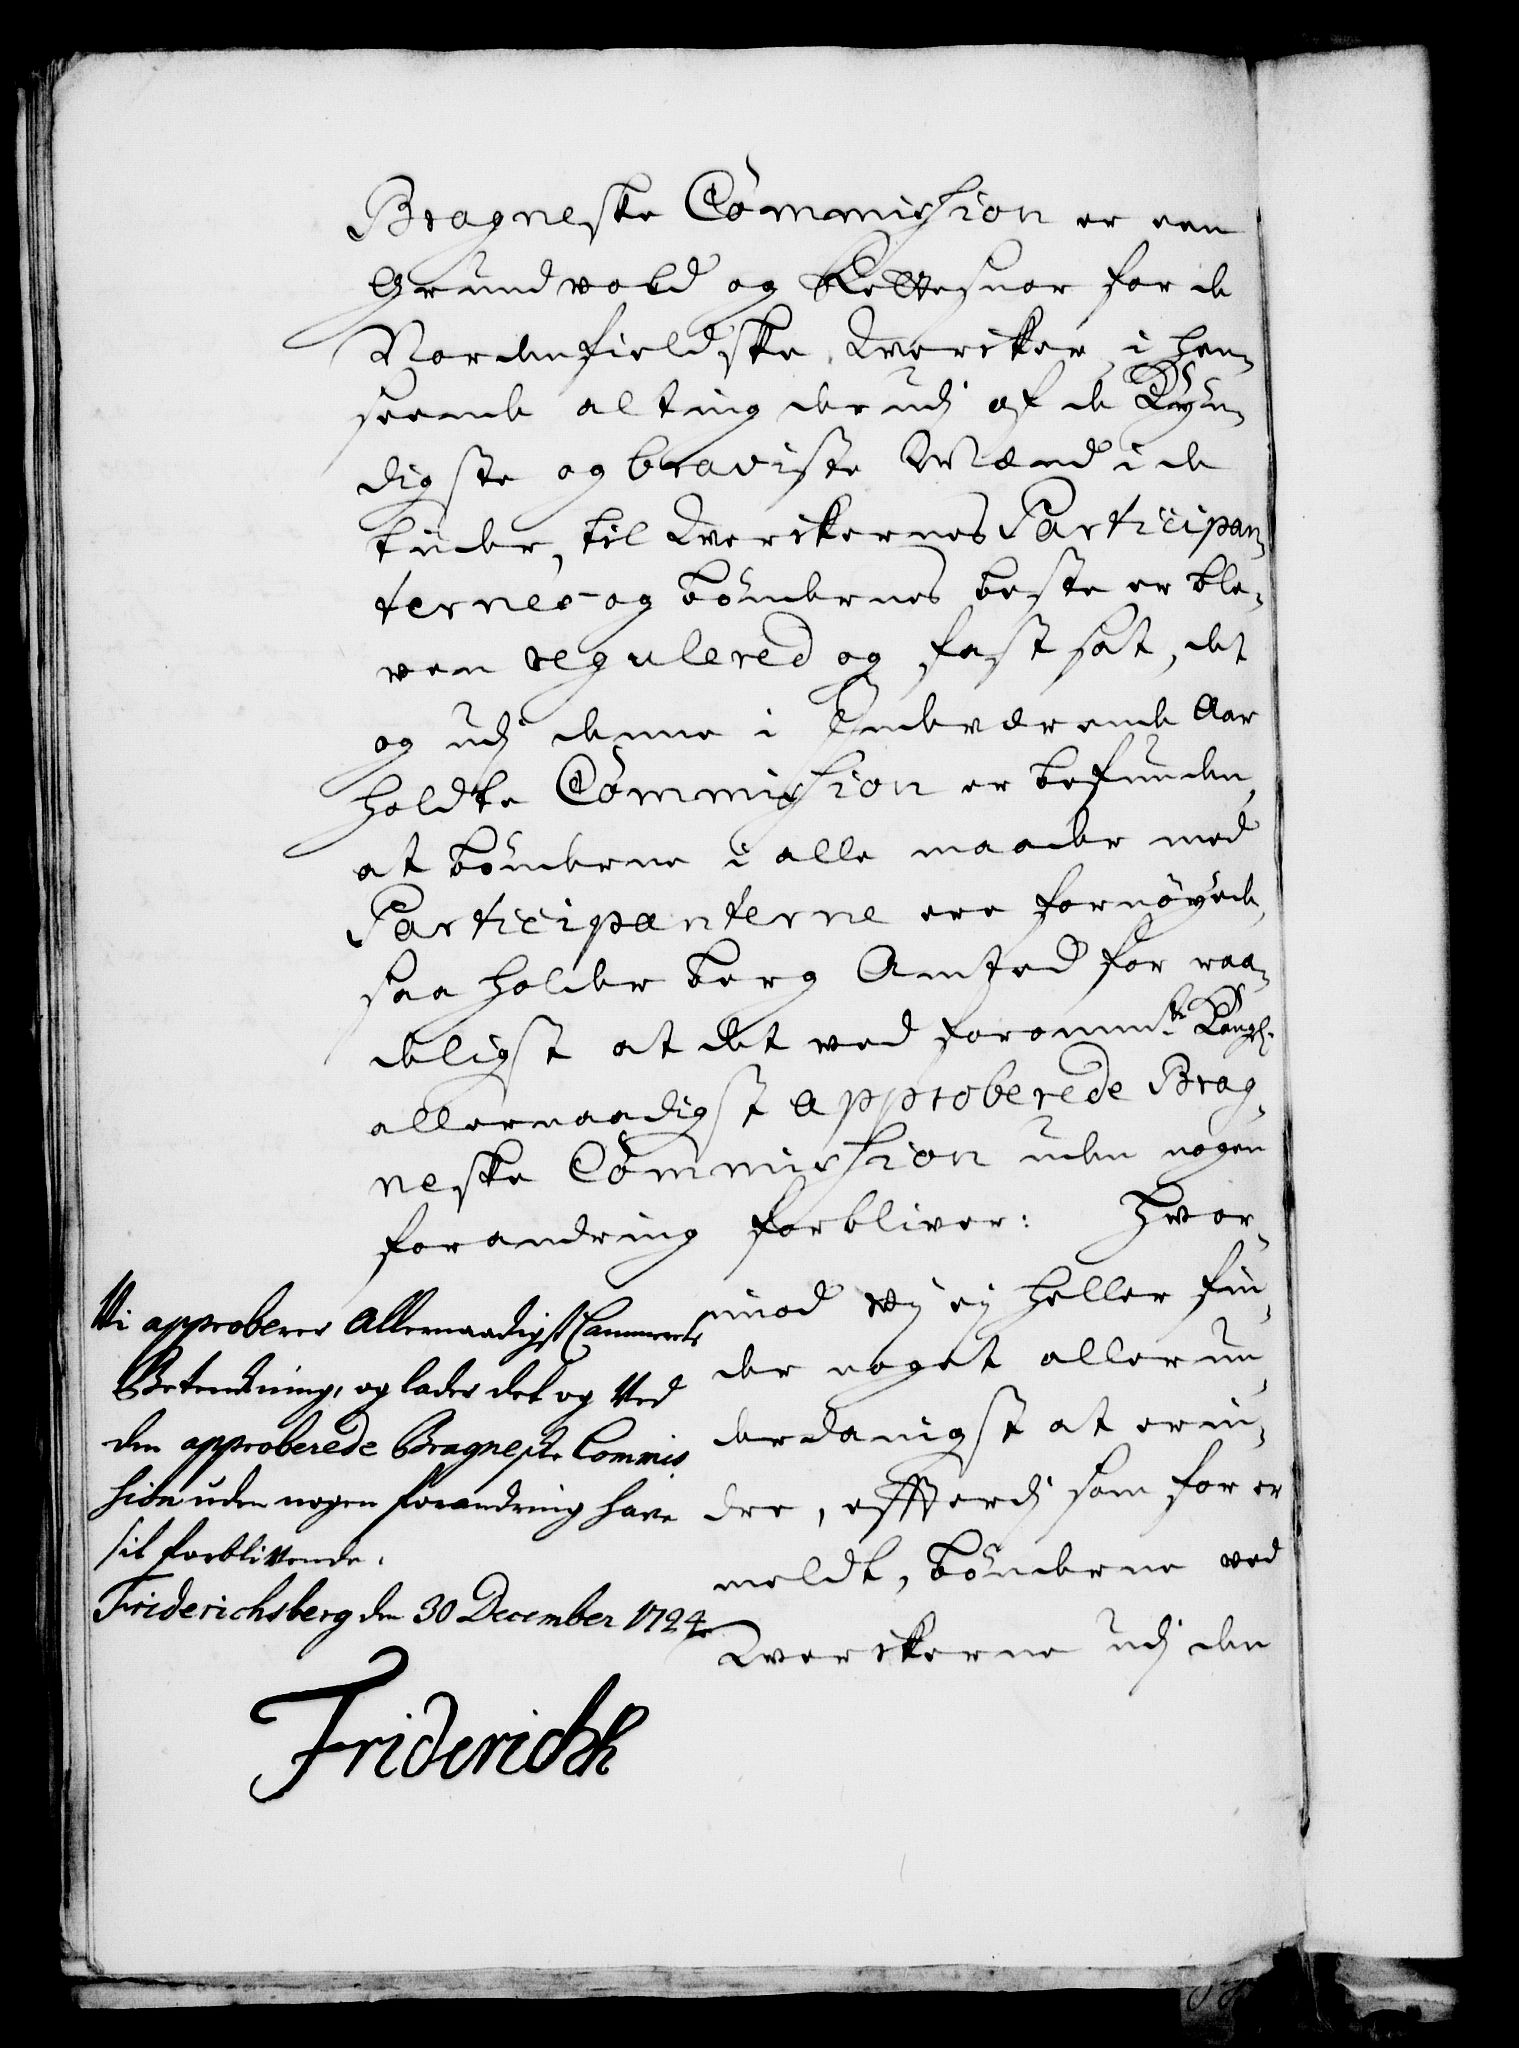 Bragneske Commission er een
Grundvold og Rettesnor for de
Nordenfieldske Vercker, i hen-
seende alting derudj af de Kyn-
digste og braviste Mænd i de
tiider, til Verckernes Participan-
ternes og bøndernes beste er ble-
ven regulered og fastsat, det
og udj denne i Indeværende Aar
holdte Commission er befunden,
at bønderne i alle maader med
Participanterne ere fornøyede,
saa holder berg Amted for raa-
deligst at det ved forommte Kongl.
allernaadigst approberede Brag-
neske Commission uden nogen
forandring forbliver: Hvor-
imod vj ej heller fin-
der noget allerun-
derdanigst at erin-
dre, efftterdj som for er
meldt, bønderne ved
Verckerne udj den
Vi approberer Allernaadigst Cammerets
Betenckning, og lader det og Ved
den approberede Bragneske Commis
sion uden nogen forandring have
sit forblivende.
Friderichsberg den 30 December 1724
Friderich